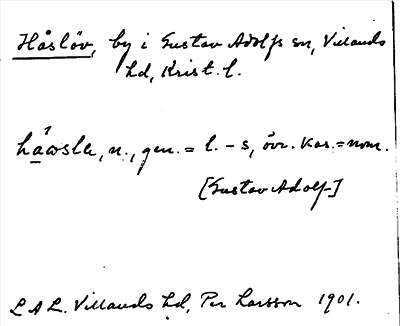 Håslöv, by i Gustav Adolfs sn, Villands
hd, Krist. l.
håwslœ, n., gen. = l. - s, övr. kas. = nom.
[Gustav Adolf-]
L A L. Villands hd, Per Larsson 1901.